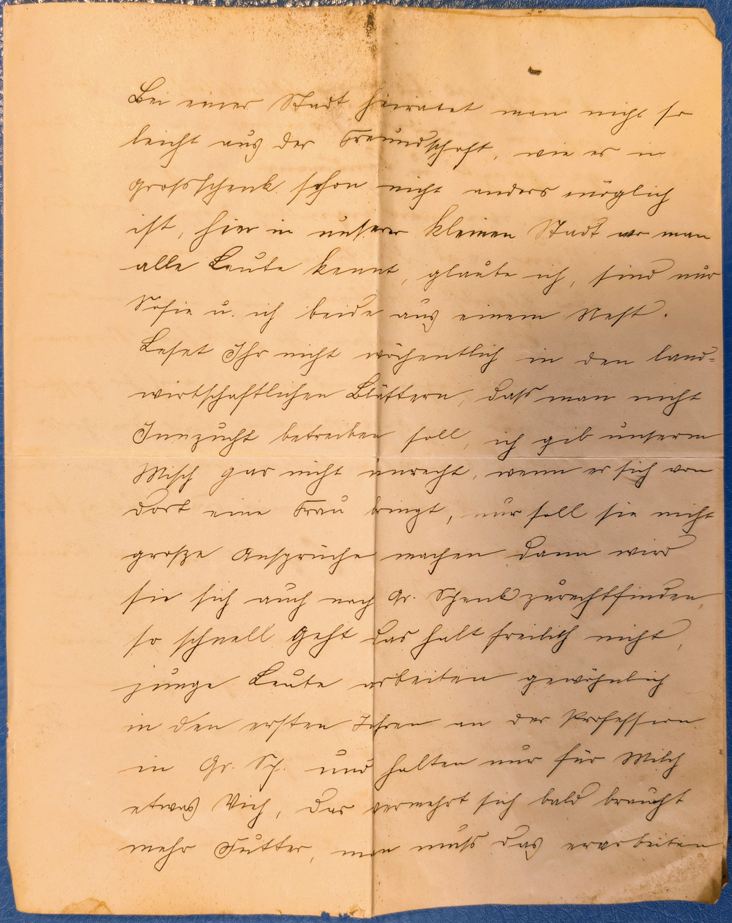 Bei einer Stadt heiratet man nicht so
leicht aus der Freundschaft, wie es in
Grossschenk schon nicht anders möglich
ist, hier in unserer kleinen Stadt wo man
alle Leute kennt, glaube ich, sind nur
Sofie u. ich beide aus einem Nest.
Leset Ihr nicht wöchentlich in den land-
wirtschaftlichen Blättern, dass man nicht
Innzucht betreiben soll, ich geb unserm
Misch gar nicht unrecht, wenn er sich von
dort eine Frau bringt, nur soll sie nicht
große Ansprüche machen dann wird
sie sich auch nach Gr. Schenk zurechtfinden,
so schnell geht das halt freilich nicht,
junge Leute arbeiten gewöhnlich
in den ersten Jahren an der Profession
in Gr. Sch. und halten nur für Milch
etwas Vieh, das vermehrt sich bald braucht
mehr Futter, man muss das erarbeiten